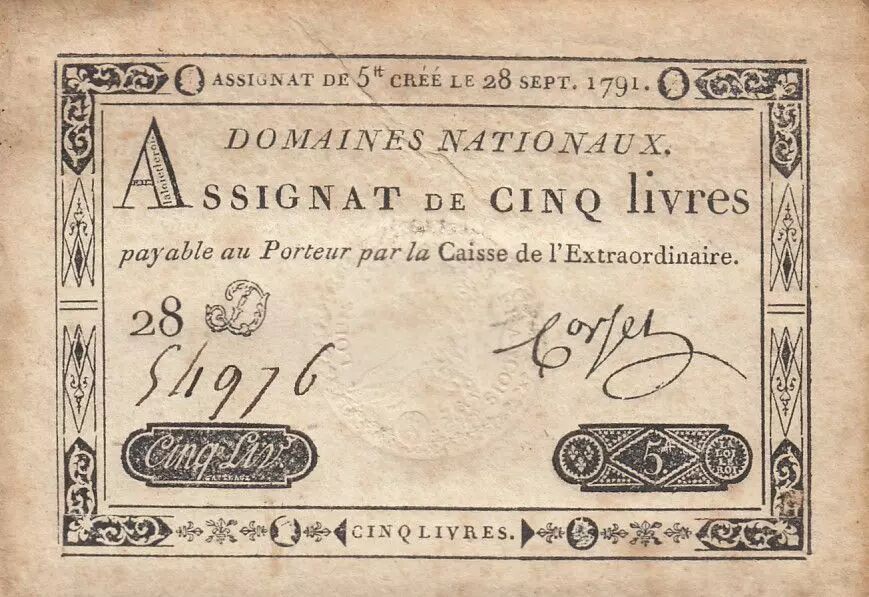 ASSIGNAT DE 5tt CRÉÉ LE 28 SEPT. 1791.
DOMAINES NATIONAUX.
ASSIGNAT DE CINQ livres
payable au Porteur par la Caisse de l'Extraordinaire.
28 D
54976
Corsel
Cinq Liv.
5tt
LA LOI ET LE ROI
CINQ LIVRES.